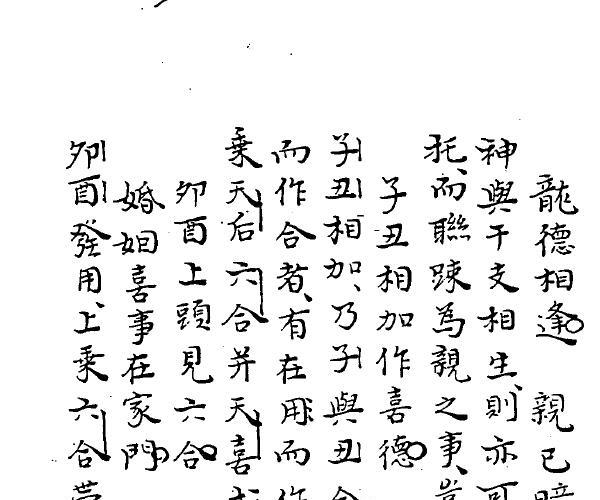 龍德相逢 親已
神與干支相生、則亦可
托、而聯踈為親之事、
子丑相加作喜德
子丑相加、乃子與丑合
而作合者、有在用而作
乘天后六合并天喜
卯酉上頭見六合
婚姻喜事在家門
卯酉發用、上乘六合